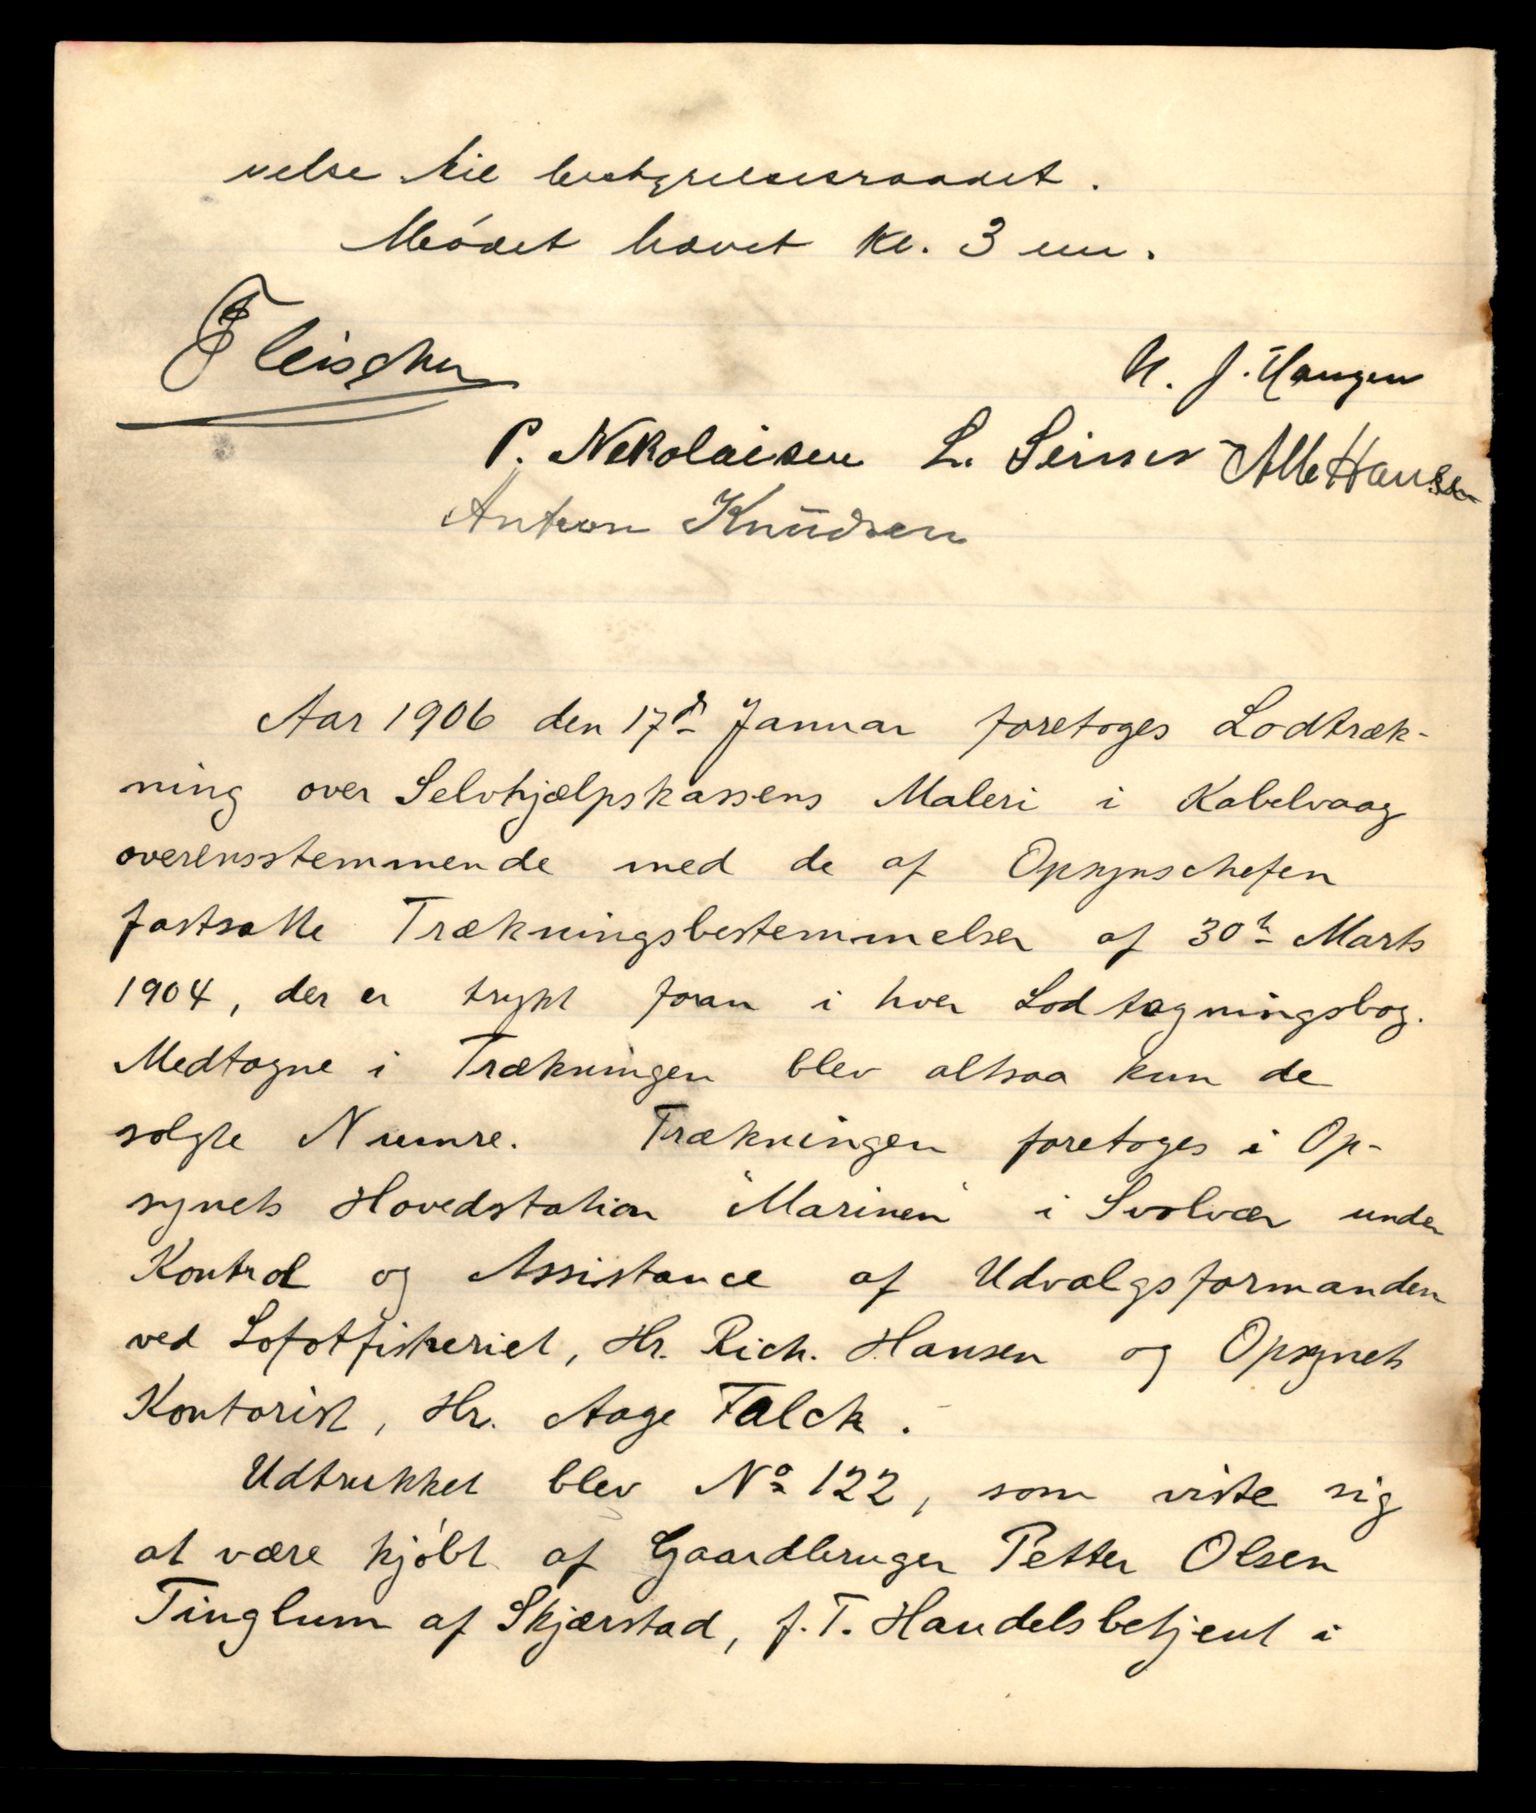 velse til bestyrelsesraadet.
Mødet hævet Kl. 3 em.
Fleischer
P. Nekolaisen L. Hansen
Anton Knudsen
Aar 1906 den 17d Januar foretoges Lodtræk-
ning over Selvhjælpskassens Maleri i Kabelvaag
overensstemmende med de af Opsynschefen
fastsatte Trækningsbestemmelser af 30te Marts
1904, der er trykt foran i hver Lodtagningsbog.
Medtagne i Trækningen blev altsaa kun de
solgte Numre. Trækningen foretoges i Op-
synets Hovedstation "Marinen" i Svolvær under
Kontrol og Assistance af Udvalgsformanden
ved Lofotfiskeriet, Hr. Rich. Hansen og Opsynets
Kontorist, Hr. Aage Falck.
Udtrukket blev No 122, som viste sig
at være kjøbt af Gaardbruger Petter Olsen
Tinglum af Skjærstad, f. T. Handelsbetjent i